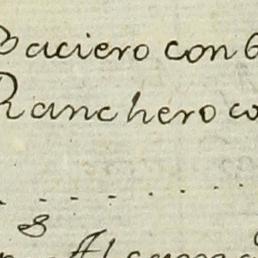 Baciero con 6
Ranchero co
s